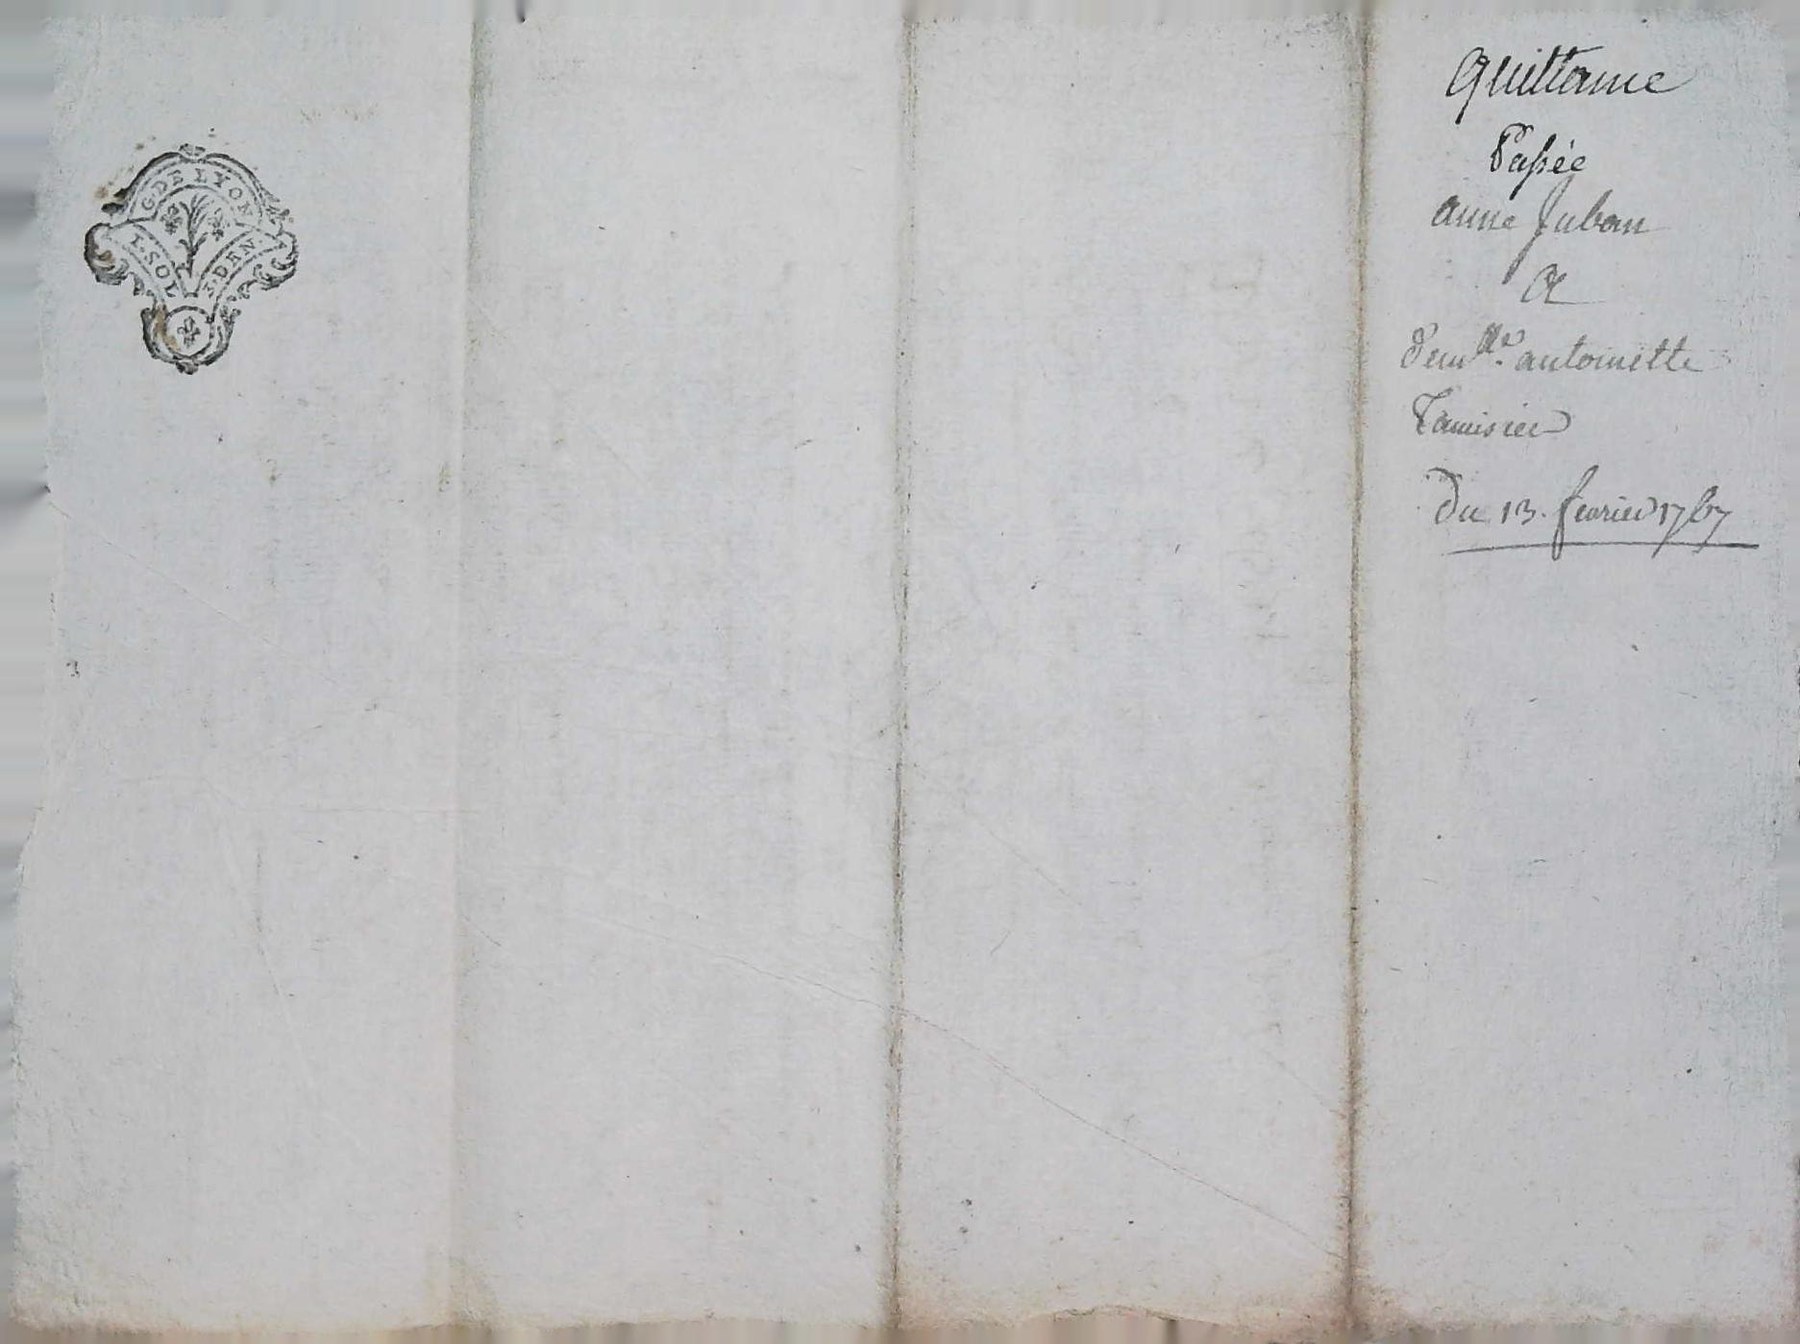 G. DE LYON
1. SOL
DEN.
quittance
Passée
anne Juban
A
Dem.lle antoinette
Tamisier
du 13. fevrier 1767